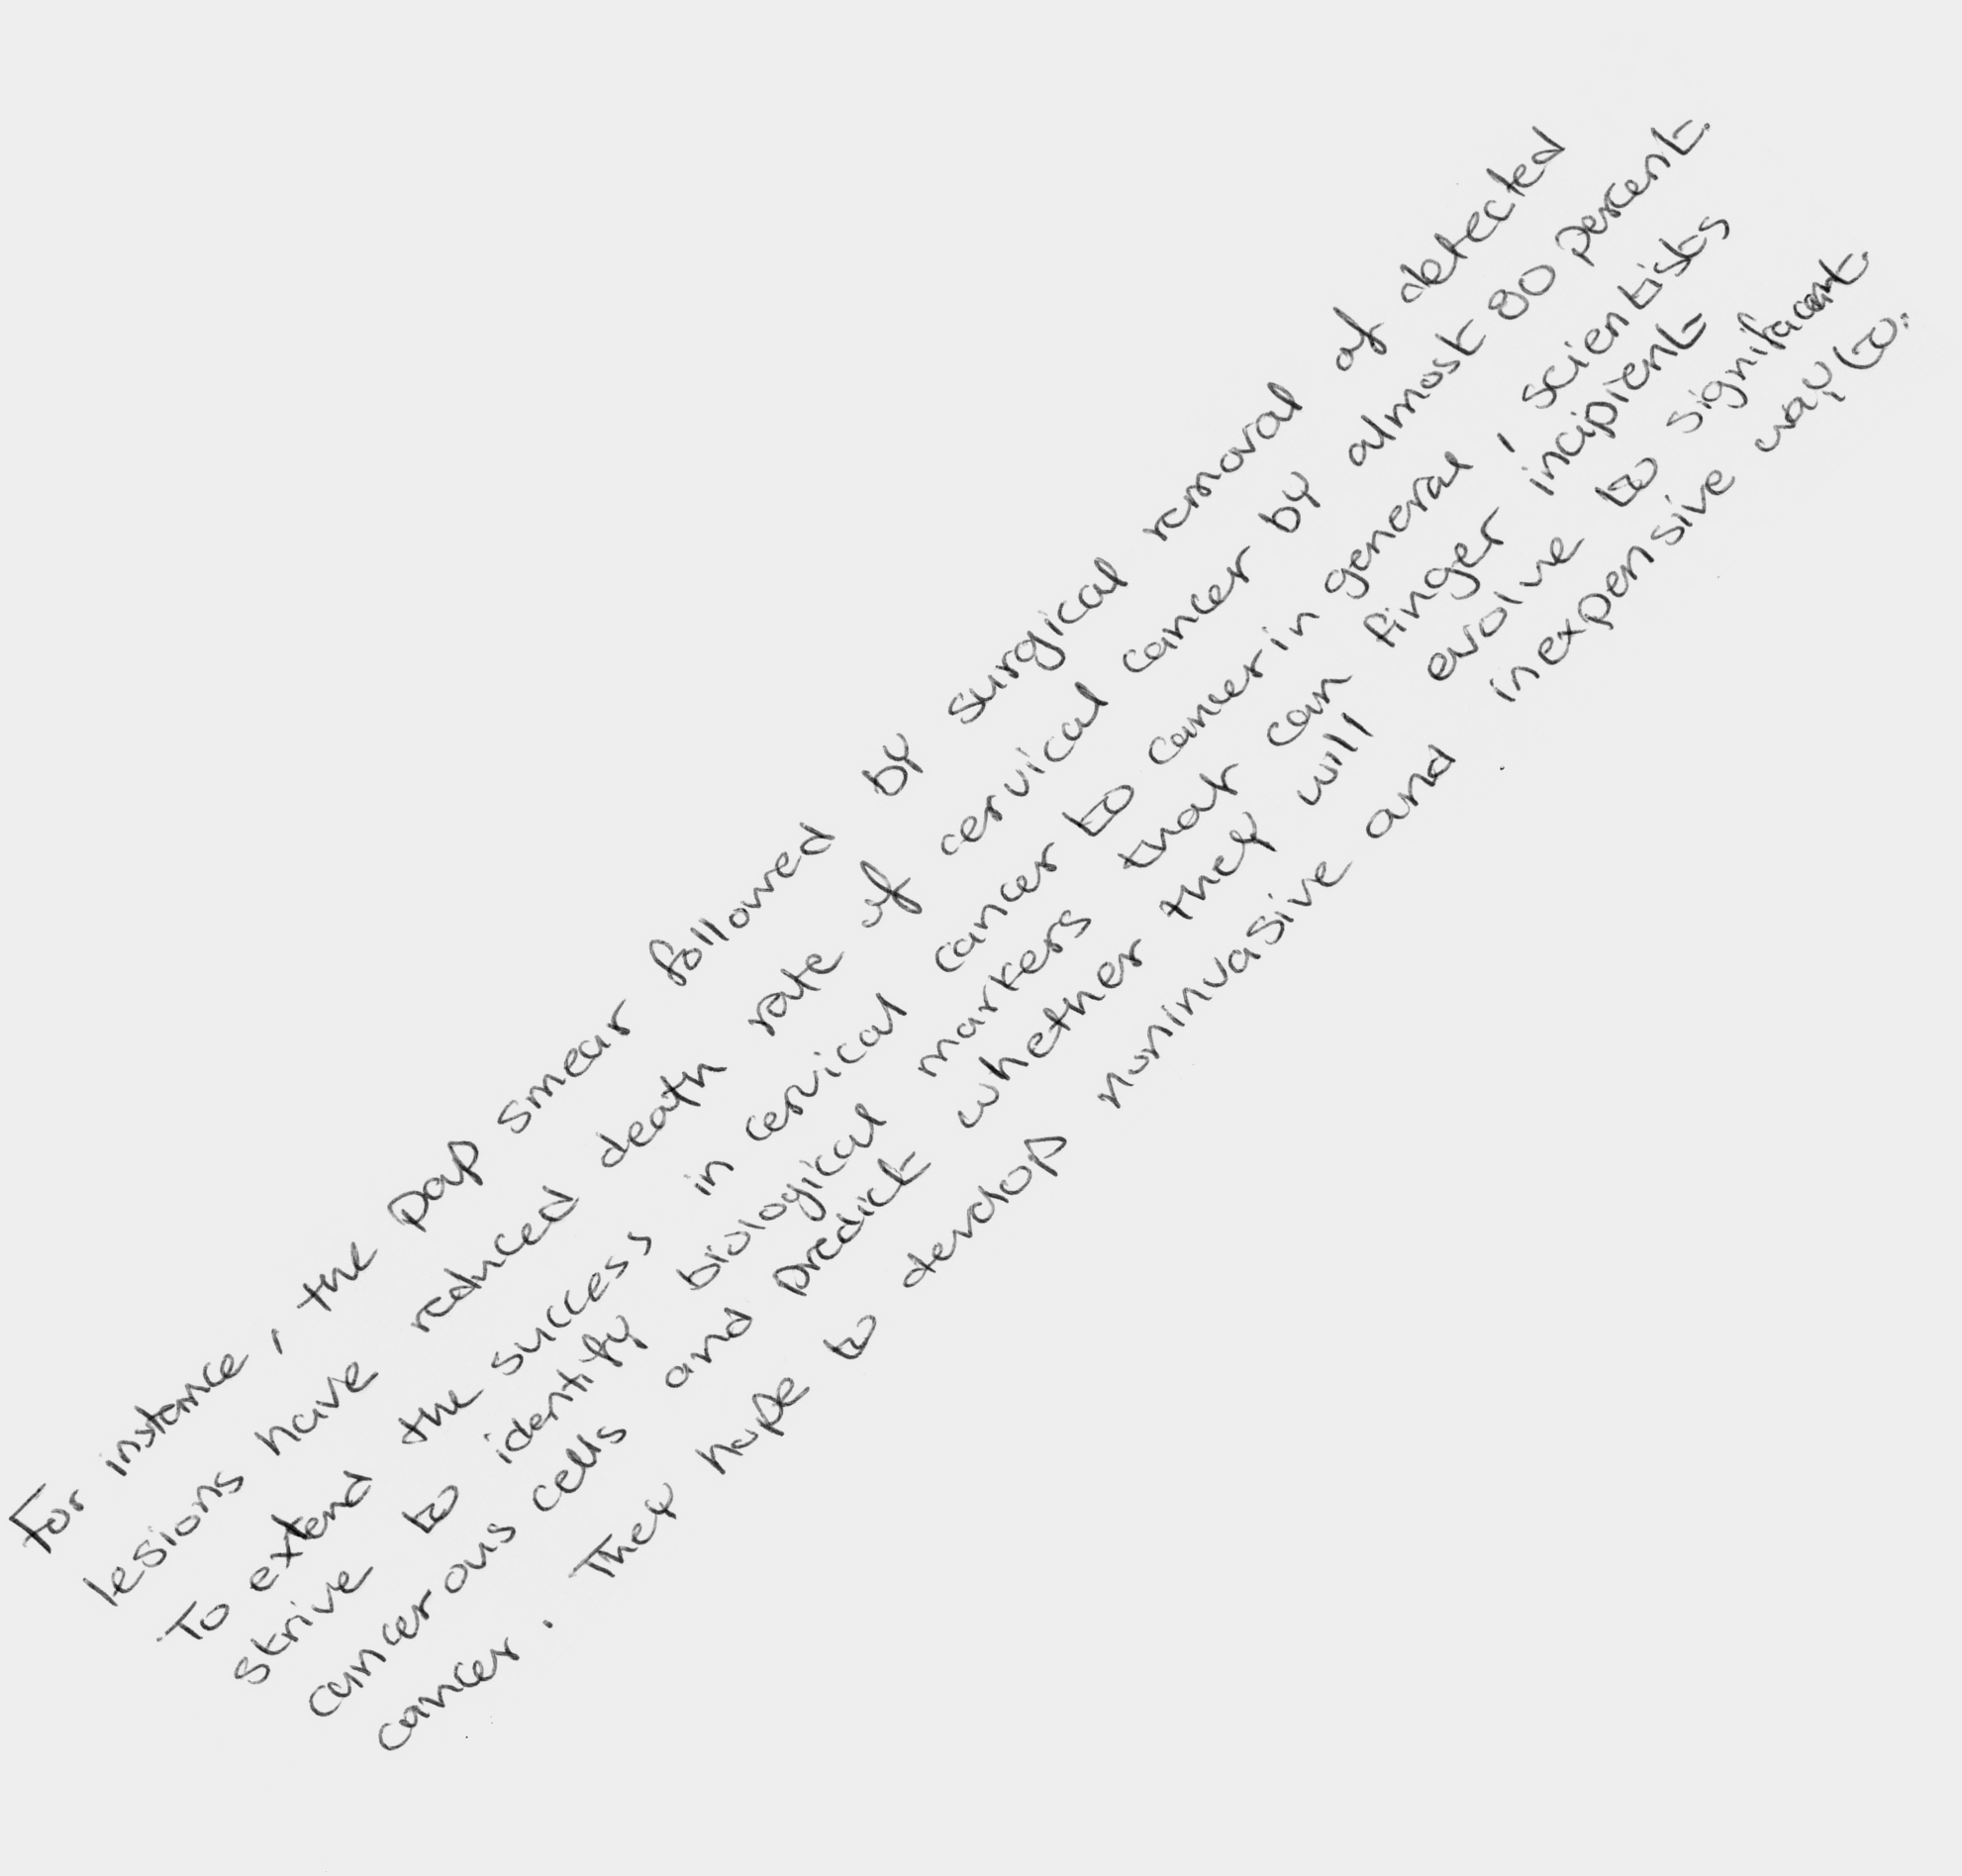 For instance, the Pap smear followed by surgical removal of detected
lesions have reduced death rate of cervical cancer by almost 80 percent.
To extend the success in cervical cancer to cancer in general, scientists
strive to identify biological markers that can finger incipient
cancerous cells and predict whether they will evolve to significant
cancer. They hope to develop noninvasive and inexpensive way(s).